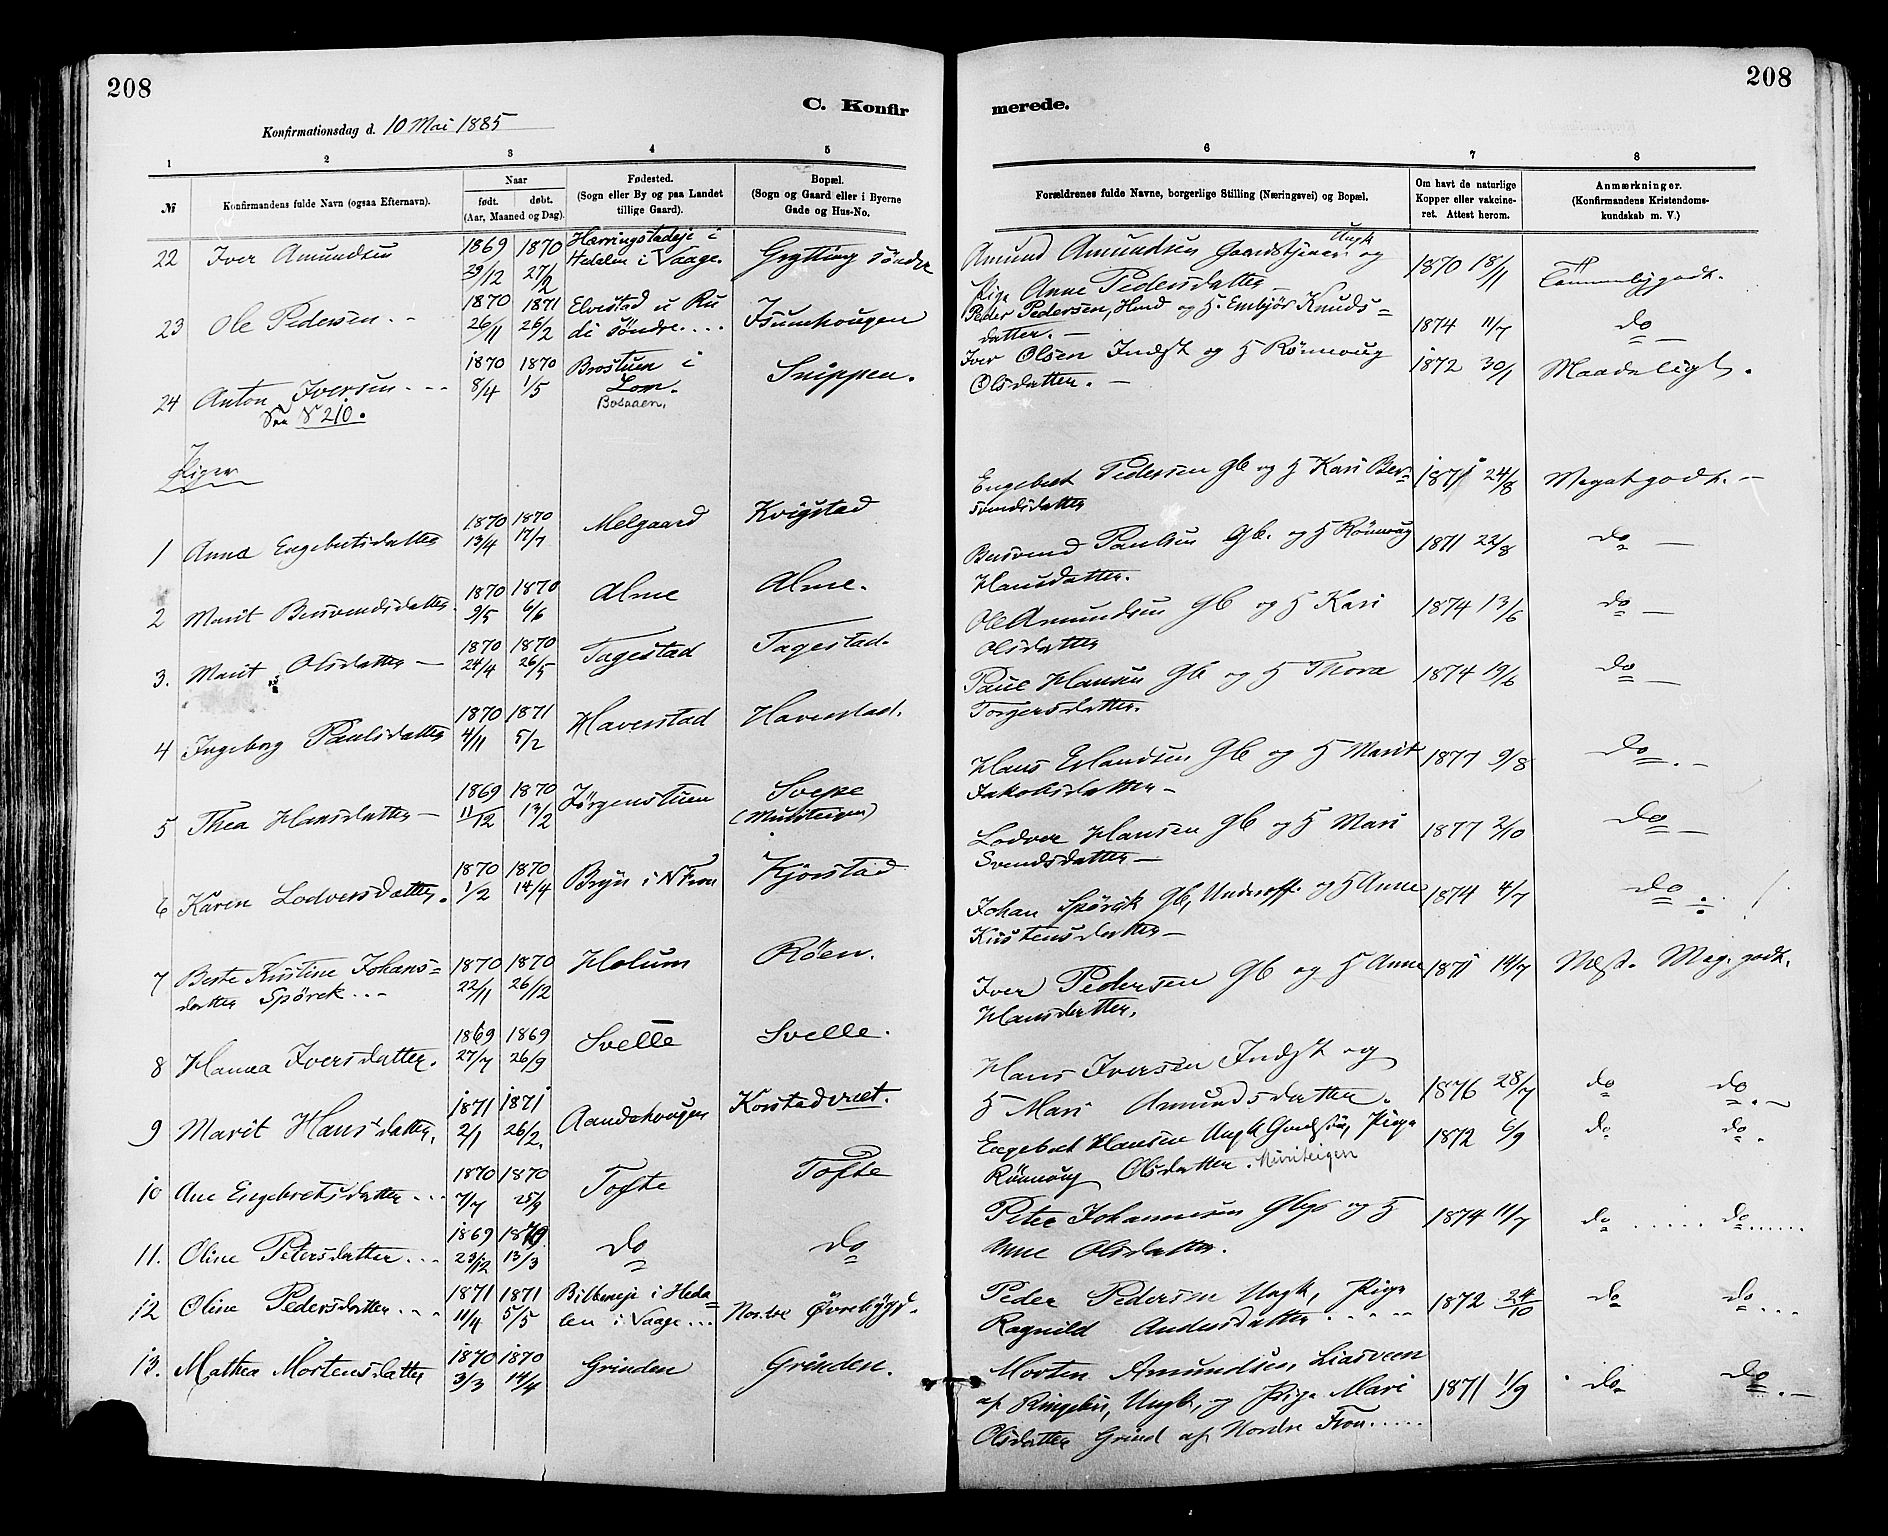 208
208
C. Konfir
merede.
Konfirmationsdag d. 10 Mai 1885
1 2 3 4 5 6 7 8
№
Konfirmandens fulde Navn (ogsaa Efternavn).
Naar
født. døbt.
(Aar, Maaned og Dag).
Fødested.
(Sogn eller By og paa Landet
tillige Gaard).
Bopæl.
(Sogn og Gaard eller i Byerne
Gade og Hus-No.
Forældrenes fulde Navne, borgerlige Stilling (Næringsvei) og Bopæl.
Om havt de naturlige
Kopper eller vakcine-
ret. Attest herom.
Anmærkninger.
(Konfirmandens Kristendoms-
kundskab m. V.)
22 Iver Amundsen 1869 29/12 1870 27/2 Hærringstadeje i
Hedalen i Vaage. Grytting søndre
Amund Amundsen Gaardstjener Ungk og
Pige Anne Pedersdatter 1870 18/1
23 Ole Pedersen 1870 26/11 1871 26/2 Elvestad u Ru
di søndre.... Isumhougen
Peder Pedersen, Hmd og H. Embjør Knuds=
datter. — 1874 11/7 do —
24 Anton Iversen 1870 8/4 1870 1/5 Brostuen i
Lom.
Bosaaen.
Snippen.
Iver Olsen Indst og H Rønnoug
Olsdatter. — 1872 30/1 Maadeligt.
Se S 210.
Piger
1 Anne Engebretsdatter 1870 13/4 1870 17/7 Melgaard Kvigstad
Engebret Pedersen Gb og H Kari Ber-
svendsdatter 1871 24/8 Megetgodt. —
2 Marit Bersvendsdatter. 1870 9/5 1870 6/6 Alme Alme.
Bersvend Paulsen Gb. og H Rønnoug
Hansdatter. 1871 22/8 do —
3. Marit Olsdatter — 1870 24/4 1870 26/5 Tagestad Tagestad.
Ole Amundsen Gb og H Kari
Olsdatter 1874 13/6 do —
4 Ingeborg Paulsdatter 1870 4/11 1871 5/2 Haverstad Haverstad.
Paul Hansen Gb og H Thora
Torgersdatter. 1874 19/6 do —
5 Thea Hansdatter — 1869 11/12 1870 13/2 Jørgenstuen Svepe
(Munsteigen)
Hans Erlandsen Gb og H Marit
Jakobsdatter — 1877 9/8 do. —
6 Karen Lodversdatter. 1870 1/2 1870 14/4 Bryn i N Fron Kjørstad
Lodver Hansen Gb og H Mari
Svendsdatter — 1877 2/10 do —
7 Beste Kristine Johans=
datter Spørck... 1870 22/11 1870 26/12 Holum Røen.
Johan Spørck Gb, Underoff. og H Anne
Kristensdatter — 1874 4/7 do ÷ !
8 Hanna Iversdatter. 1869 27/7 1869 26/9 Svelle Svelle.
Iver Pedersen Gb og H Anne
Hansdatter. 1871 14/7 Næst. Meg. godt.
9 Marit Hansdatter. 1871 2/1 1871 26/2. Aandehougen Korstadvæet.
Hans Iversen Indst og
H Mari Amundsdatter. 1876 28/7 do do. —
10 Ane Engebretsdatter... 1870 7/7 1870 25/9 Tofte Tofte
Engebret Hansen Ungk Pige
Rønnoug Olsdatter. Munsteigen 1872 6/9 do do.
11. Oline Petersdatter... 1869 23/12 1870 13/3 do do
Peter Johannesen og H
Anne Olsdatter. 1874 11/7 do ..... do.....
12 Oline Pedersdatter.... 1871 11/4 1871 5/5 i Heda=
len i Vaage... Nordre Øvrebygd.
Peder Pedersen Ungk, Pige
Ragnild Andersdatter..... 1872 24/10 do do...
13. Mathea Mortensdatter 1870 3/3 1870 14/4 Grinden Grinden.
Morten Amundsen, Liasveen
af Ringebu, Ungk, og Pige Mari
Olsdatter Grind af Nordre Fron...... 1871 1/9 do do. —